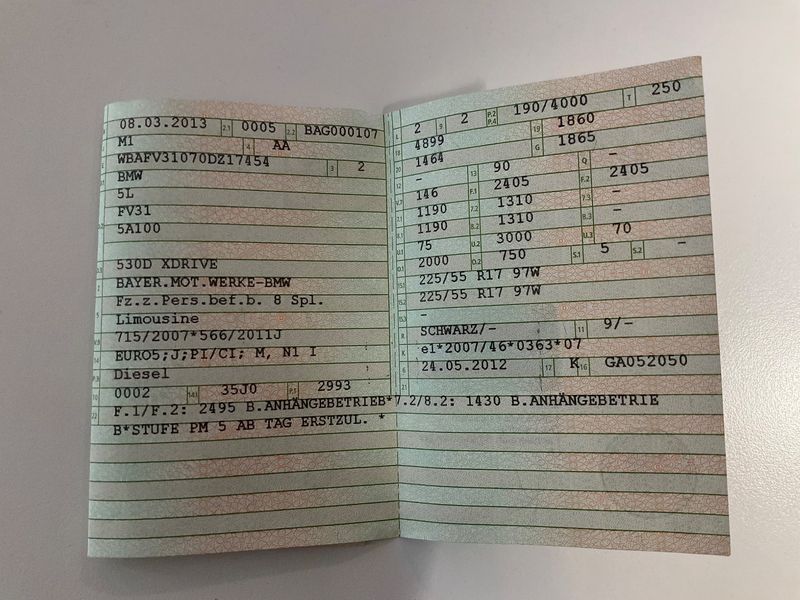 08.03.2013 2.1 0005 2.2 BAG000107
M1 4 AA
WBAFV31070DZ17454 3 2
BMW
5L
FV31
5A100
530D XDRIVE
BAYER.MOT.WERKE-BMW
Fz.z.Pers.bef.b. 8 Spl.
Limousine
715/2007*566/2011J
EURO5;J;PI/CI; M, N1 I
Diesel
0002 14.1 35J0 P.1 2993
L 2 9 2 P.2 P.4 190/4000 T 250
4899 19 1860
1464 G 1865
- 13 90 Q -
146 F.1 2405 F.2 2405
1190 7.2 1310 7.3 -
1190 8.2 1310 8.3 -
75 U.2 3000 U.3 70
2000 O.2 750 S.1 5 S.2 -
225/55 R17 97W
225/55 R17 97W
-
SCHWARZ/- 11 9/-
e1*2007/46*0363*07
24.05.2012 17 K 16 GA052050
F.1/F.2: 2495 B.ANHÄNGEBETRIEB*7.2/8.2: 1430 B.ANHÄNGEBETRIE
B*STUFE PM 5 AB TAG ERSTZUL. *